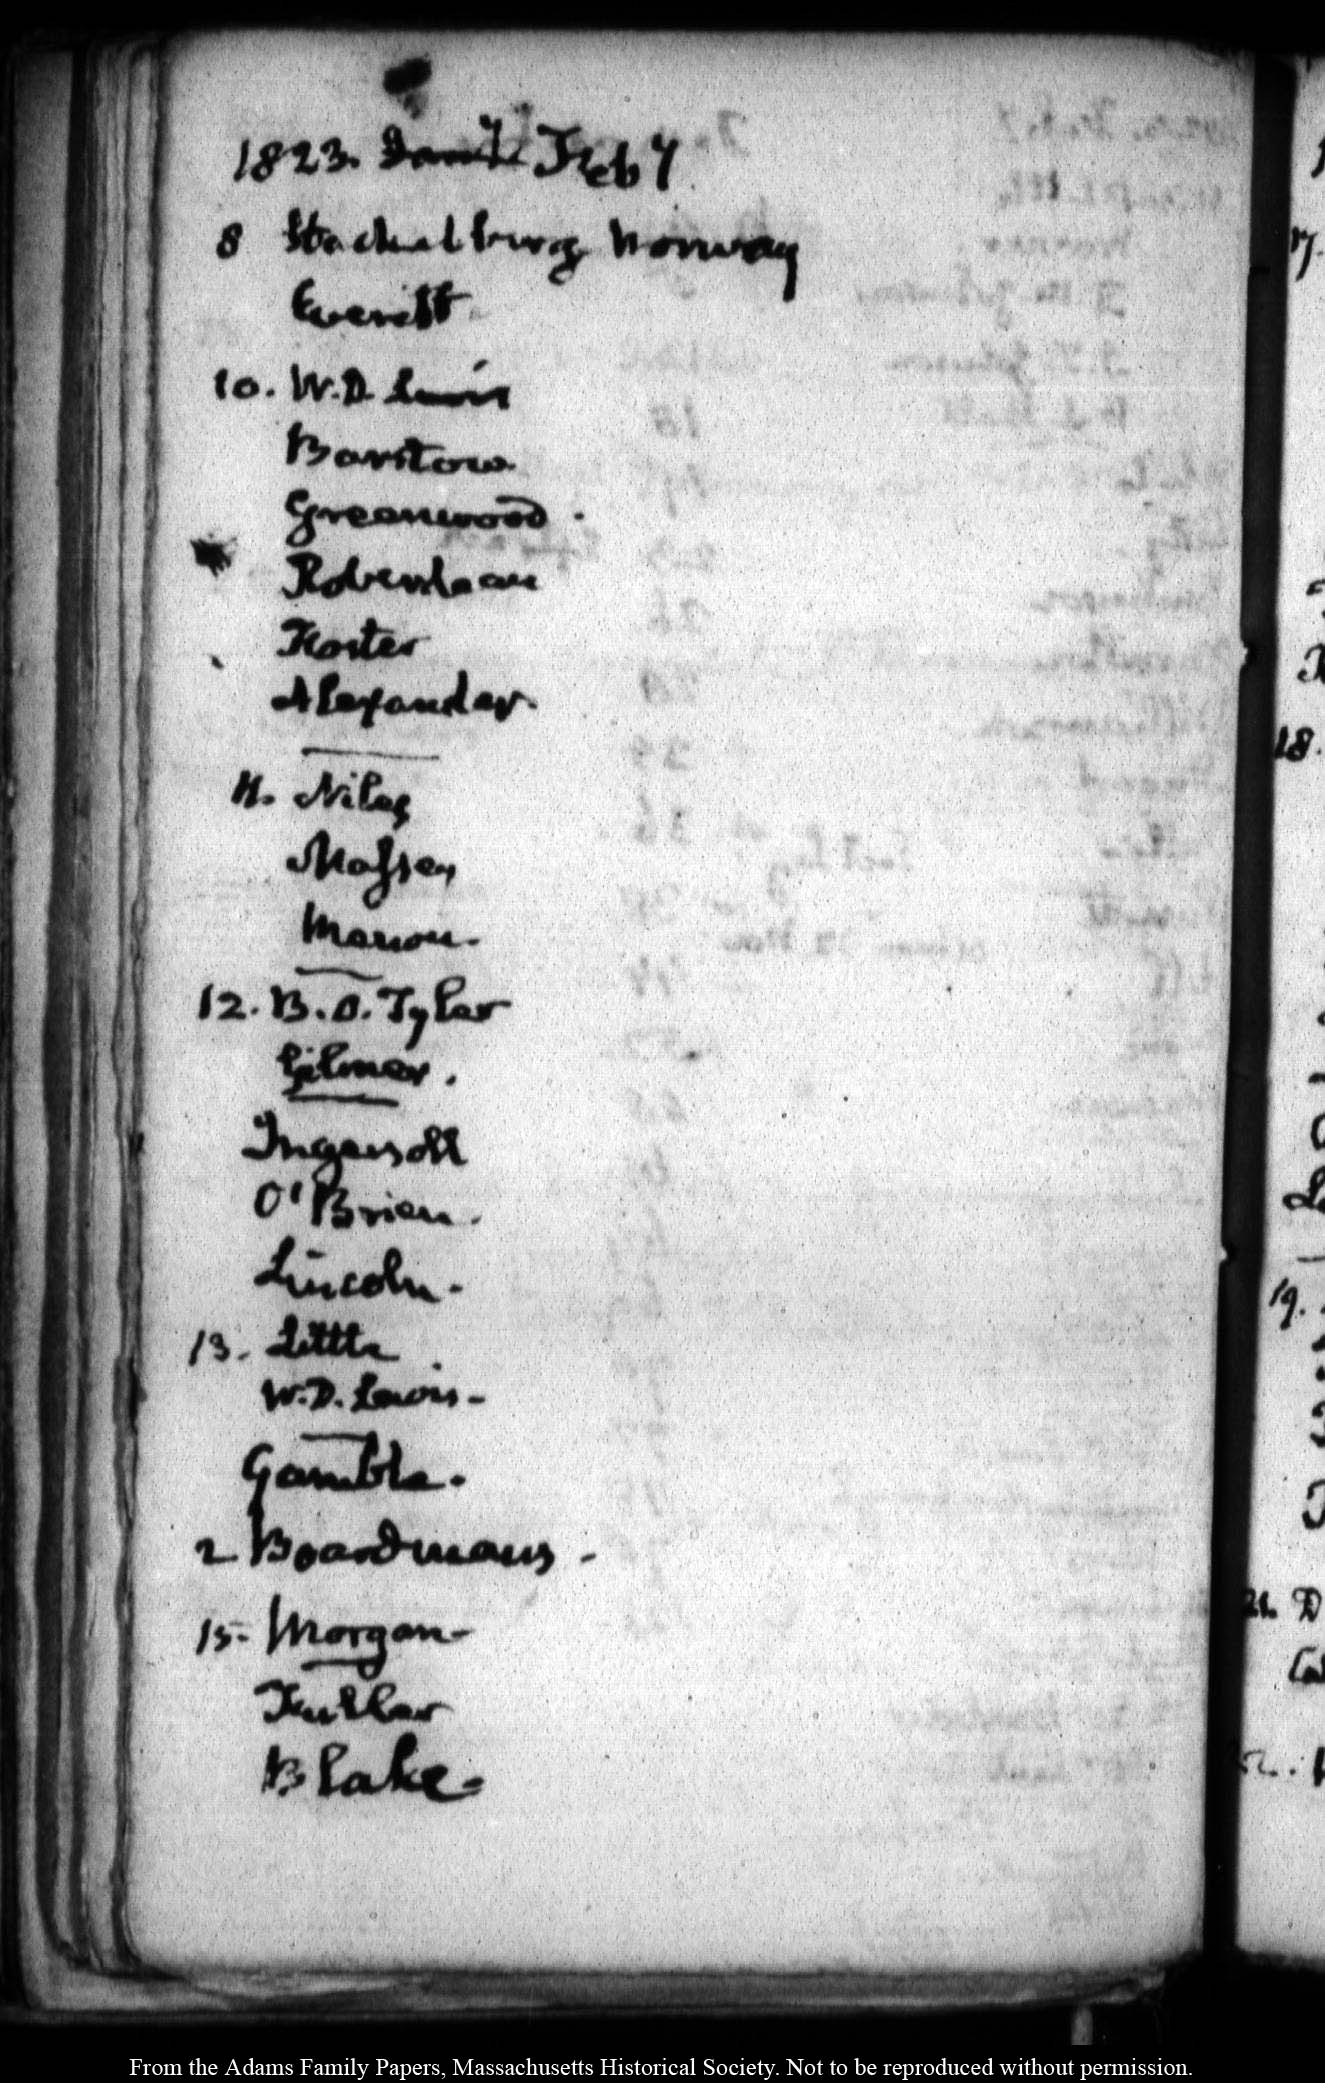 1823. Feb 7
8 Stackelburg Norway
Everitt
10. W. D. Lewis
Barstow.
Greenwood.
Roberdeau
Foster
Alexander.
11. Niles
Massey
Marion.
12. B. O. Tyler
Gilmer.
Ingersoll
O'Brien.
Lincoln.
13. Little
W. D. Lewis-
Gamble.
2 Boardmans.
15. Morgan-
Fuller
Blake.
17.
18.
19.
21. D
From the Adams Family Papers, Massachusetts Historical Society. Not to be reproduced without permission.